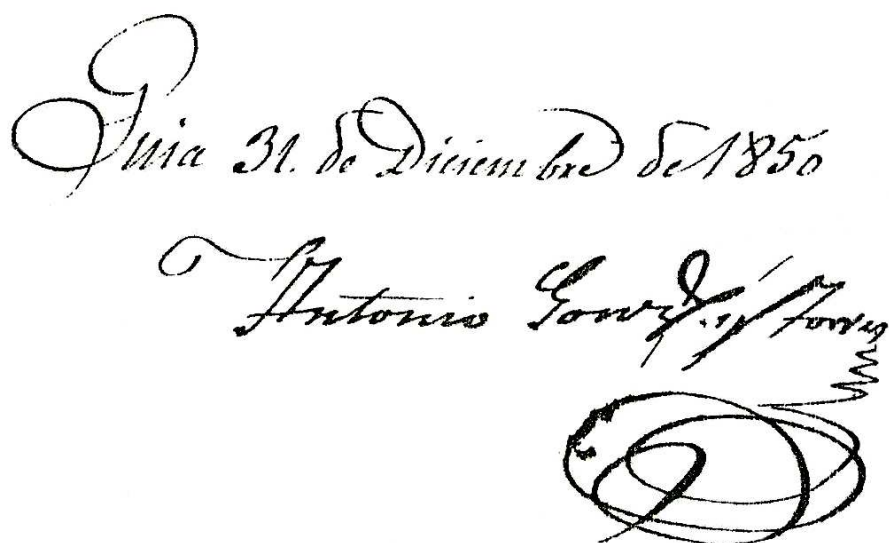 Guia 31. de Diciembre de 1850
Antonio Gonz.z y Torres